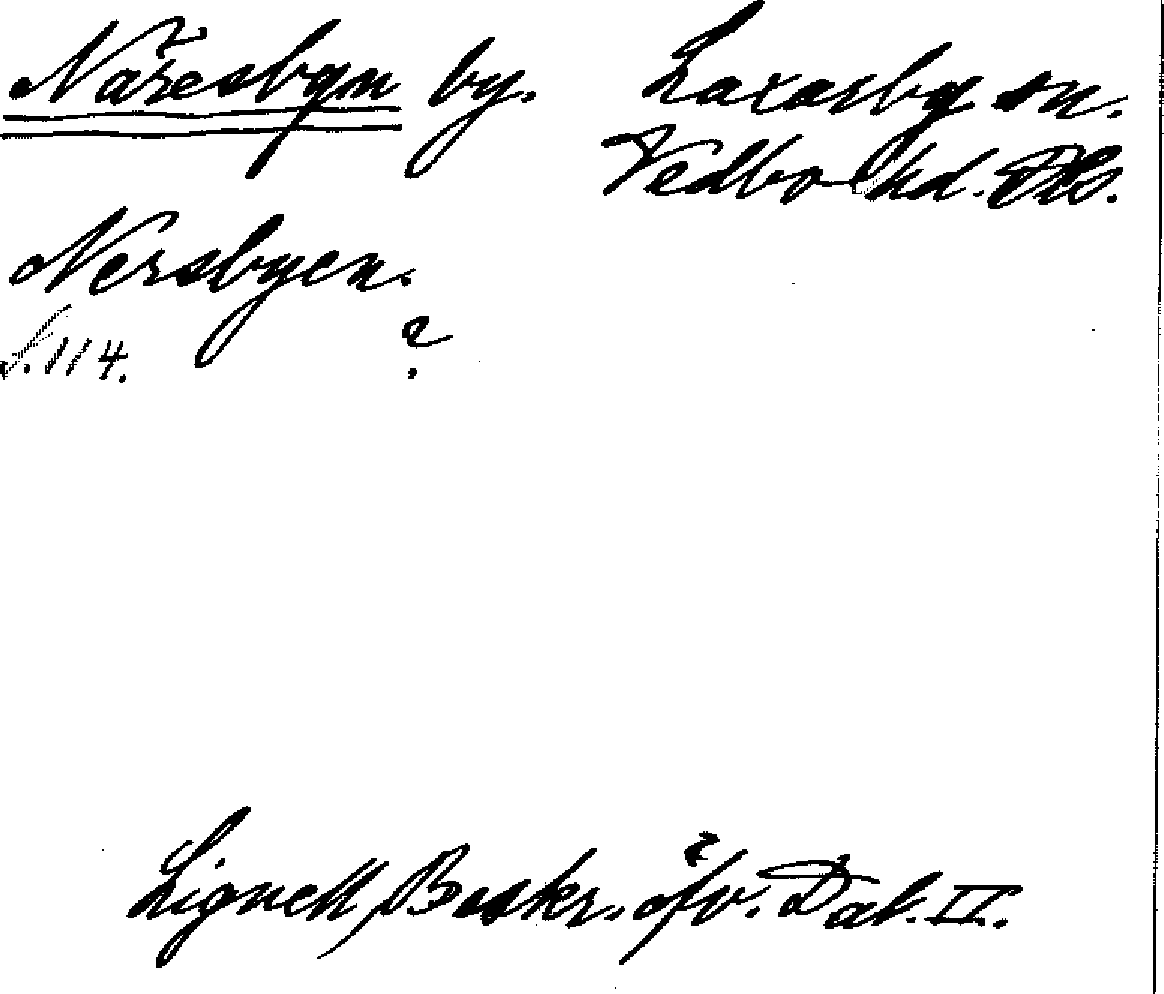 Näresbyn by. Laxarby sn.
Vedbo hd. Dls.
Nersbyen.
S. 114. ?
Lignell, Beskr. öfv. Dal. II.